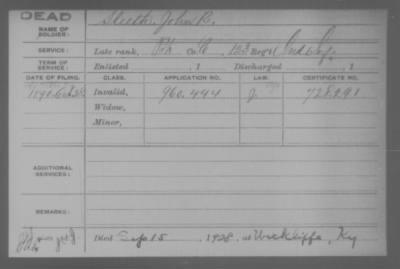 DEAD
NAME OF SOLDIER: Sleeth, John R.
SERVICE: Late rank, Co. 123 Reg't Ind. Inf.
TERM OF SERVICE: Enlisted , 1 Discharged , 1
DATE OF FILING. CLASS. APPLICATION NO. LAW. CERTIFICATE NO.
1890 Invalid, 960.444 J. 728.291
Widow,
Minor,
ADDITIONAL SERVICES:
REMARKS:
Died Sep 15, 1928, at Wickliffe, Ky